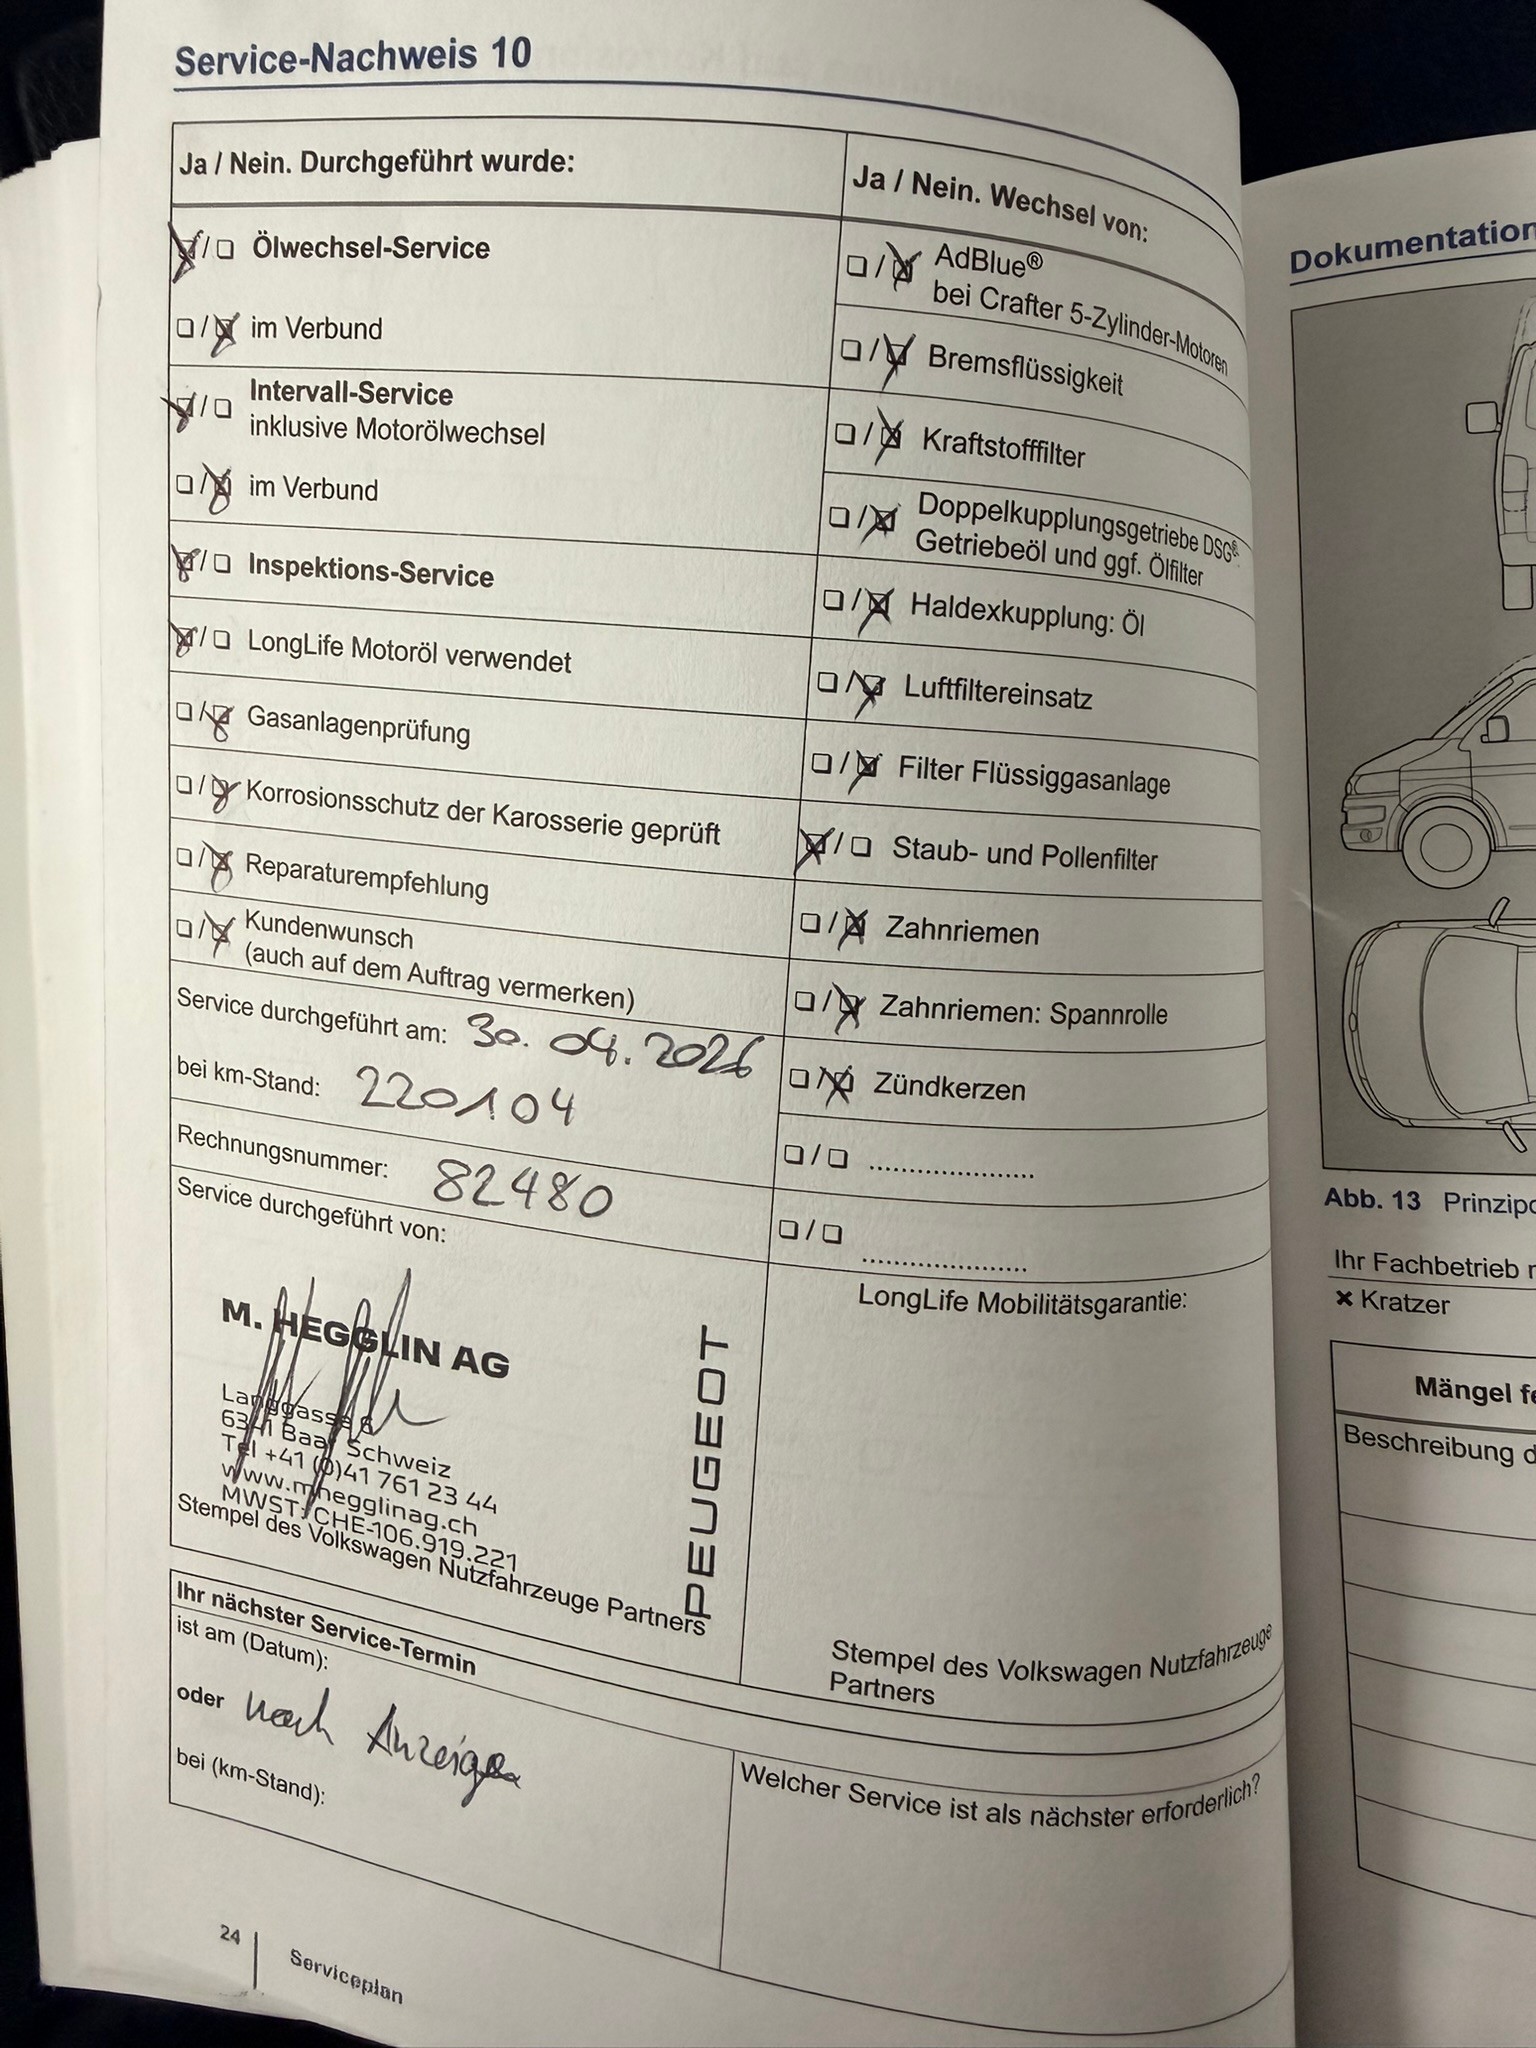 Service-Nachweis 10
Ja / Nein. Durchgeführt wurde:
☒/☐ Ölwechsel-Service
☐/☒ im Verbund
☒/☐ Intervall-Service
inklusive Motorölwechsel
☐/☒ im Verbund
☒/☐ Inspektions-Service
☒/☐ LongLife Motoröl verwendet
☐/☒ Gasanlagenprüfung
☐/☒ Korrosionsschutz der Karosserie geprüft
☐/☒ Reparaturempfehlung
☐/☒ Kundenwunsch
(auch auf dem Auftrag vermerken)
Service durchgeführt am: 30.04.2026
bei km-Stand: 220104
Rechnungsnummer: 82480
Service durchgeführt von:
M. HEGGLIN AG
Langgasse 6
6341 Baar Schweiz
Tel +41 (0)41 761 23 44
www.mhegglinag.ch
MWST: CHE-106.919.221
PEUGEOT
Stempel des Volkswagen Nutzfahrzeuge Partners
Ja / Nein. Wechsel von:
☐/☒ AdBlue®
bei Crafter 5-Zylinder-Motoren
☐/☒ Bremsflüssigkeit
☐/☒ Kraftstofffilter
☐/☒ Doppelkupplungsgetriebe DSG®:
Getriebeöl und ggf. Ölfilter
☐/☒ Haldexkupplung: Öl
☐/☒ Luftfiltereinsatz
☐/☒ Filter Flüssiggasanlage
☒/☐ Staub- und Pollenfilter
☐/☒ Zahnriemen
☐/☒ Zahnriemen: Spannrolle
☐/☒ Zündkerzen
☐/☐ .....................
☐/☐ .....................
LongLife Mobilitätsgarantie:
Stempel des Volkswagen Nutzfahrzeuge
Partners
Ihr nächster Service-Termin
ist am (Datum):
oder nach Anzeige
bei (km-Stand):
Welcher Service ist als nächster erforderlich?
24
Serviceplan
Dokumentation
Abb. 13 Prinzip
Ihr Fachbetrieb
✖ Kratzer
Mängel
Beschreibung